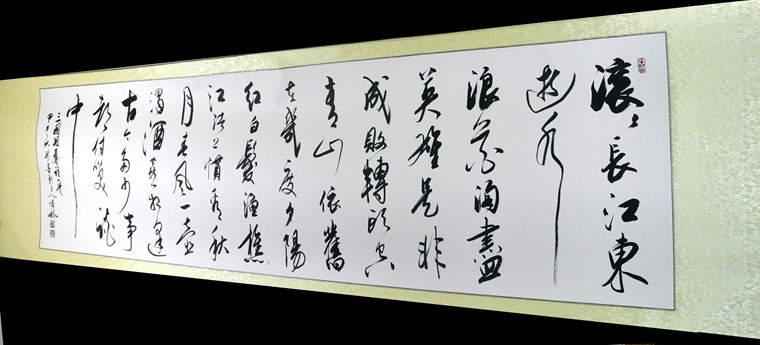 滚々長江東
逝水
浪花淘盡
英雄是非
成敗轉頭空
青山依舊
在幾度夕陽
紅白髮漁樵
江渚上慣看秋
月春風一壺
濁酒喜相逢
古今多少事
都付笑談
中
三國
甲午秋